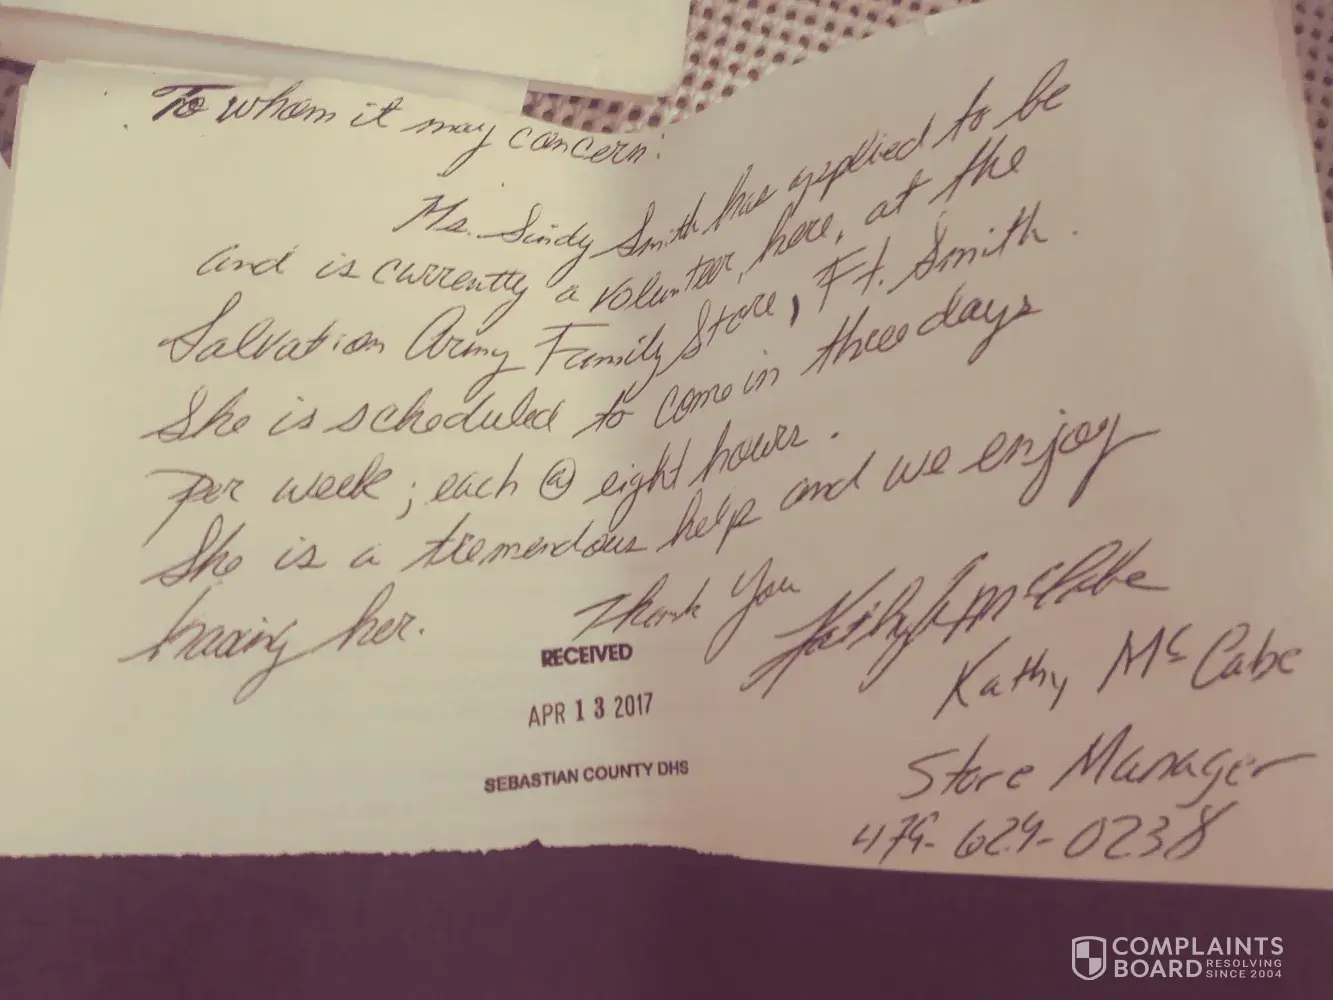 To whom it may concern:
Ms. Sindy Smith has applied to be
and is currently a volunteer, here, at the
Salvation Army Family Store, Ft. Smith.
She is scheduled to come in three days
per week; each @ eight hours.
She is a tremendous help and we enjoy
having her. Thank You
Kathy McCabe
Kathy McCabe
Store Manager
479-629-0238
RECEIVED
APR 13 2017
SEBASTIAN COUNTY DHS
COMPLAINTS
BOARD RESOLVING
SINCE 2004